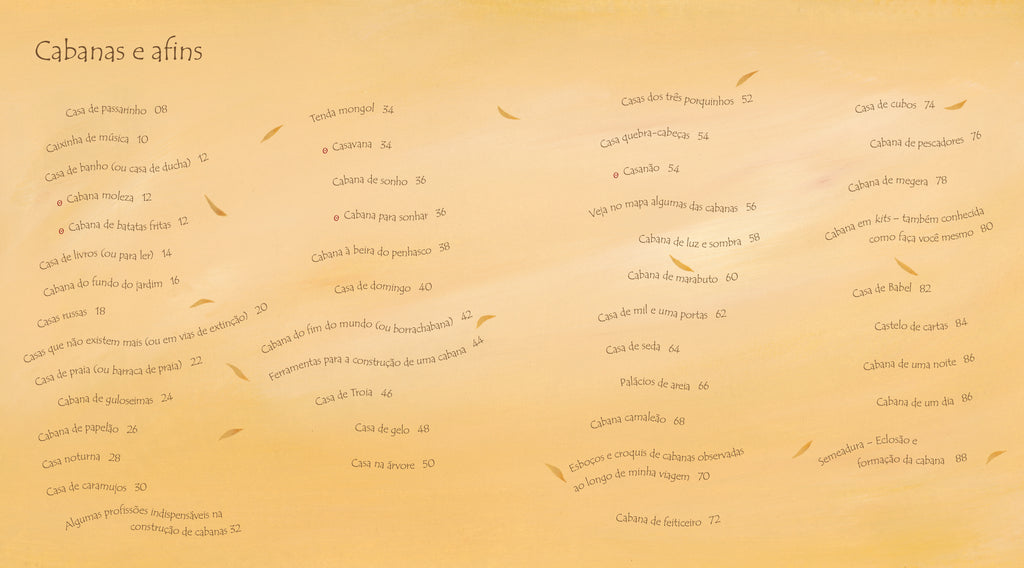 Cabanas e afins
Casa de passarinho 08
Caixinha de música 10
Casa de banho (ou casa de ducha) 12
Cabana moleza 12
Cabana de batatas fritas 12
Casa de livros (ou para ler) 14
Cabana do fundo do jardim 16
Casas russas 18
Casas que não existem mais (ou em vias de extinção) 20
Casa de praia (ou barraca de praia) 22
Cabana de guloseimas 24
Cabana de papelão 26
Casa noturna 28
Casa de caramujos 30
Algumas profissões indispensáveis na
construção de cabanas 32
Tenda mongol 34
Casavana 34
Cabana de sonho 36
Cabana para sonhar 36
Cabana à beira do penhasco 38
Casa de domingo 40
Cabana do fim do mundo (ou borrachabana) 42
Ferramentas para a construção de uma cabana 44
Casa de Troia 46
Casa de gelo 48
Casa na árvore 50
Casas dos três porquinhos 52
Casa quebra-cabeças 54
Casanão 54
Veja no mapa algumas das cabanas 56
Cabana de luz e sombra 58
Cabana de marabuto 60
Casa de mil e uma portas 62
Casa de seda 64
Palácios de areia 66
Cabana camaleão 68
Esboços e croquis de cabanas observadas
ao longo de minha viagem 70
Cabana de feiticeiro 72
Casa de cubos 74
Cabana de pescadores 76
Cabana de megera 78
Cabana em kits – também conhecida
como faça você mesmo 80
Casa de Babel 82
Castelo de cartas 84
Cabana de uma noite 86
Cabana de um dia 86
Semeadura – Eclosão e
formação da cabana 88